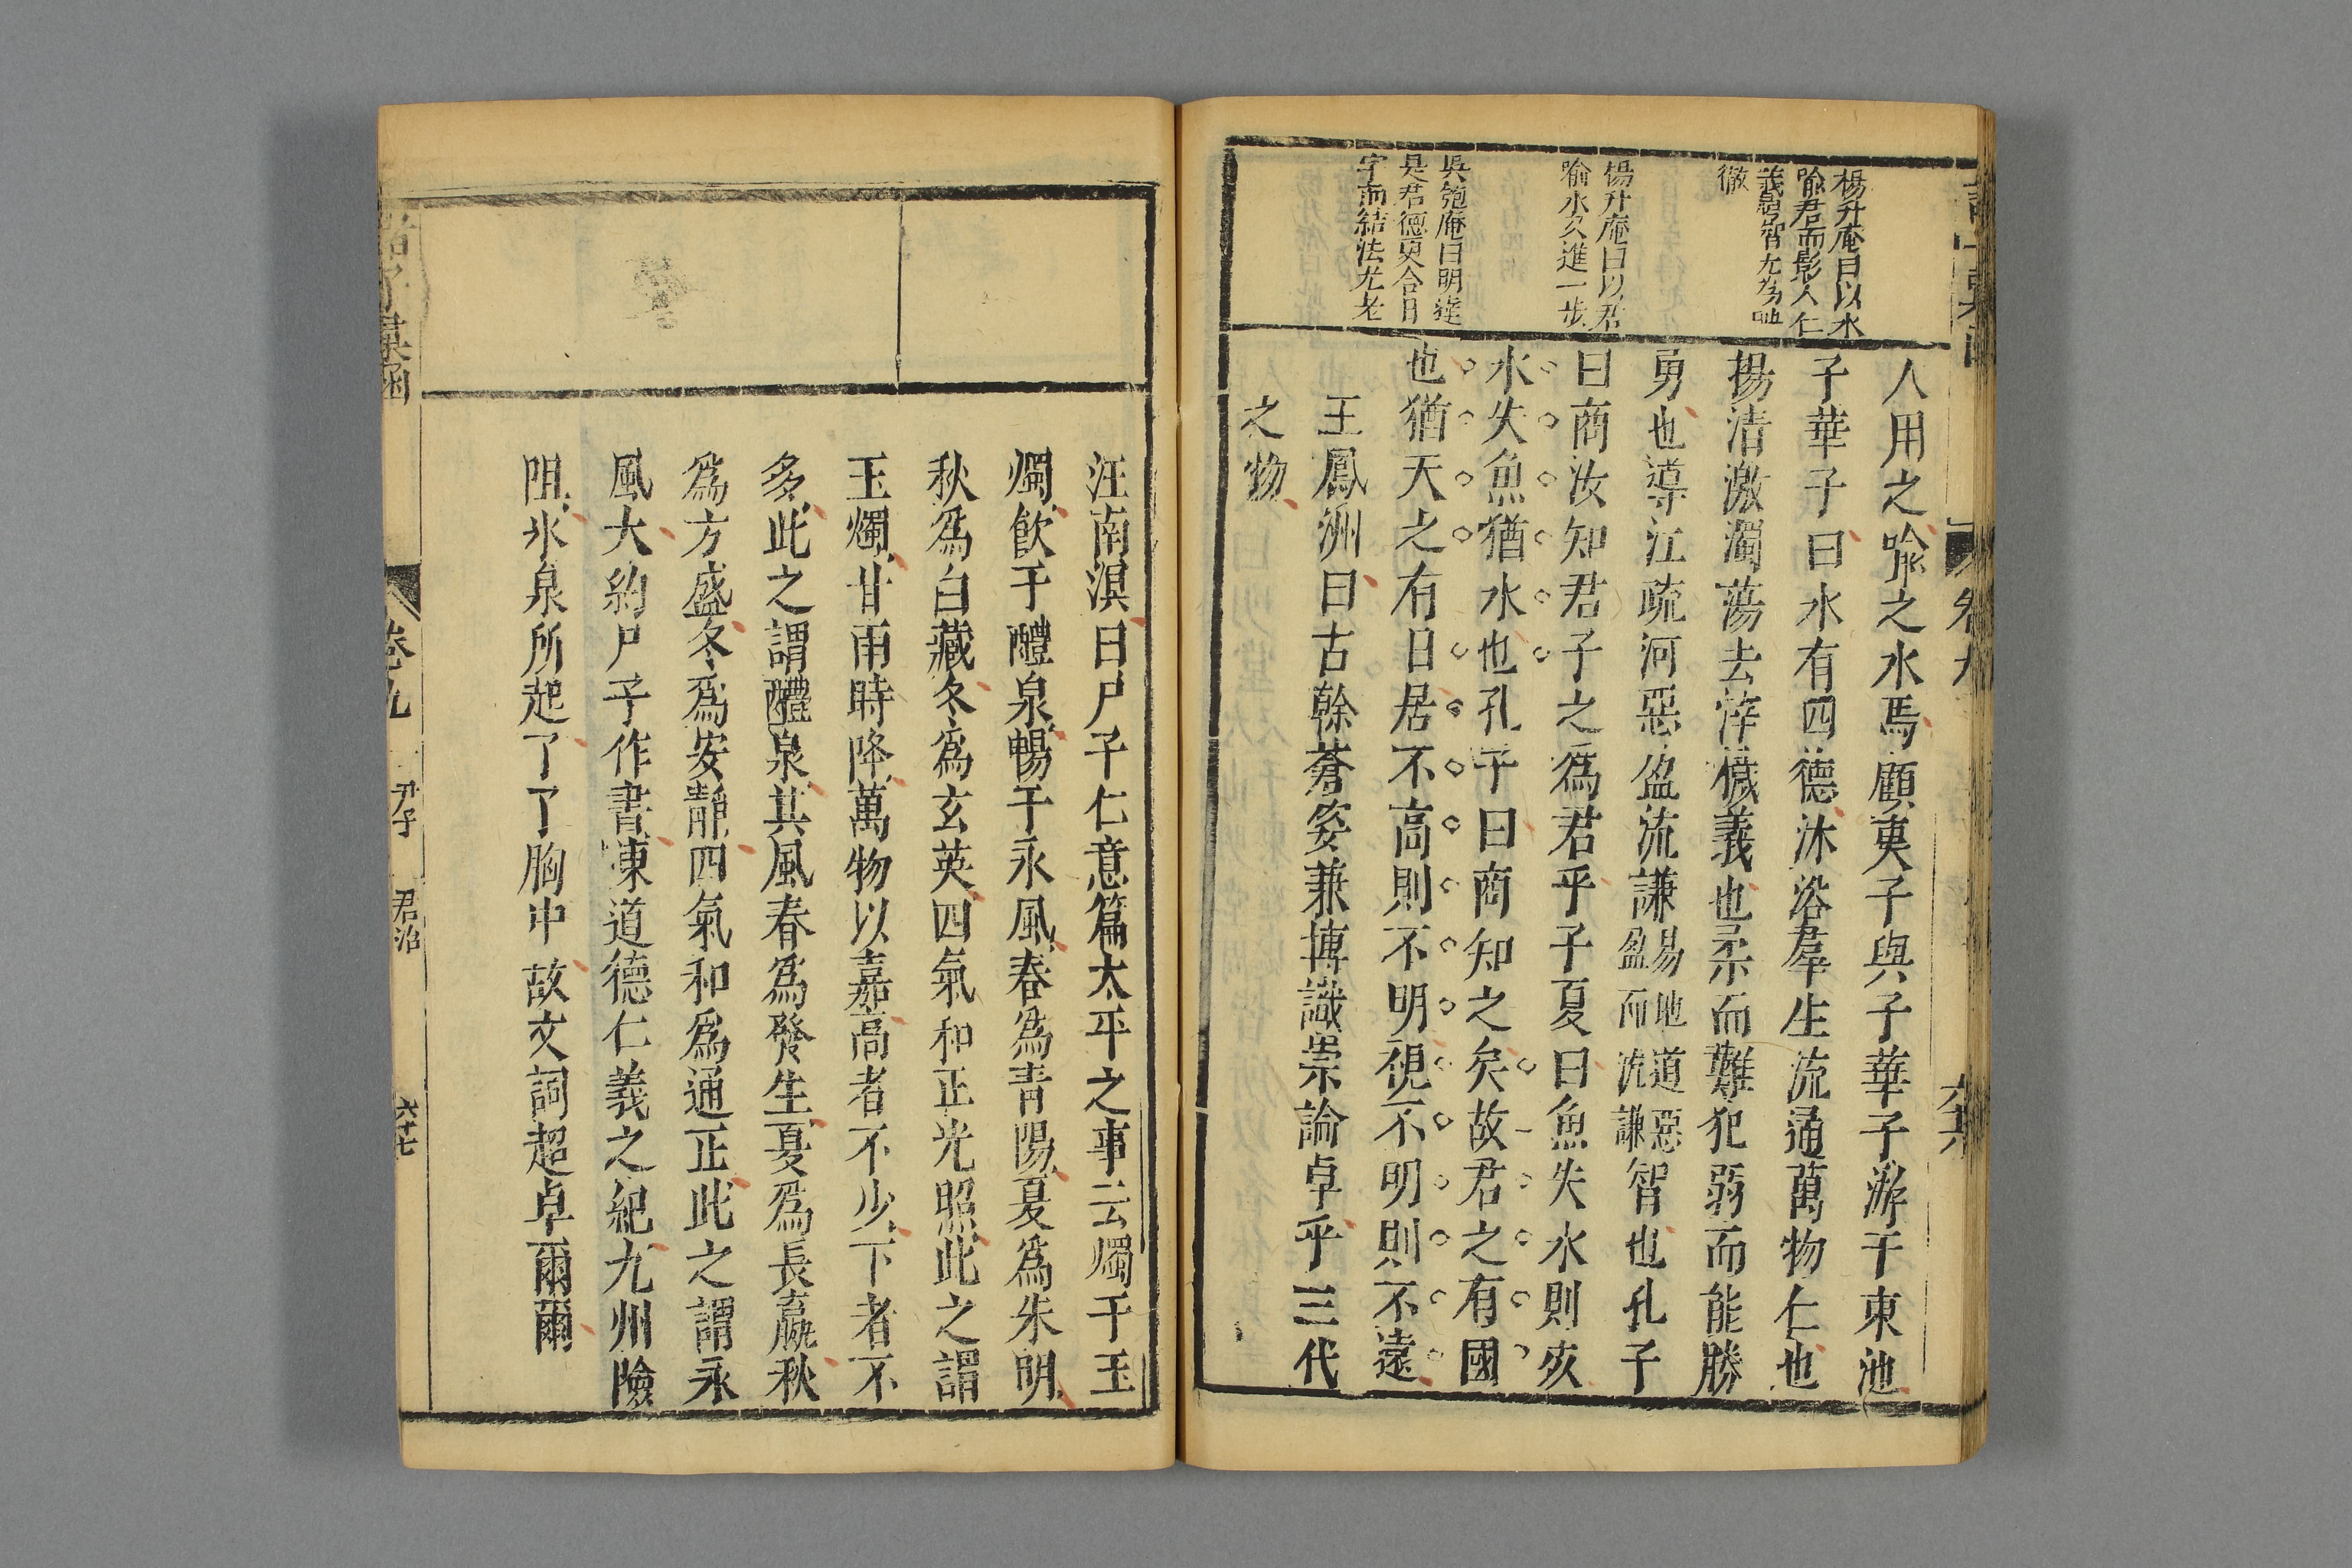 楊升庵曰以水
喩君而影人仁
義勇智尤爲
徹
楊升庵曰以君
喻水又進一步
吳匏庵曰明遠
是君德更合日
字而結法尤老
人用之喩之水焉顧夷子與子華子游于東池
子華子曰水有四德沐浴羣生流通萬物仁也
揚清激濁蕩去滓穢義也柔而難犯弱而能勝
勇也導江疏河惡盈流謙易地道惡盈而流謙智也孔子
曰商汝知君子之爲君乎子夏曰魚失水則亥
水失魚猶水也孔子曰商知之矣故君之有國
也猶天之有日居不高則不明視不明則不遠
王鳳洲曰古榦蒼姿兼摶識崇論卓乎三代
之物
卷九
六十六
汪南溟曰尸子仁意篇太平之事云燭于玉
燭飲于醴泉暢于永風春爲青陽夏爲朱明
秋爲白藏冬爲玄英四氣和正光照此之謂
玉燭甘雨時降萬物以嘉高者不少下者不
多此之謂醴泉其風春爲發生夏爲長嬴秋
爲方盛冬爲安靜四氣和爲通正此之謂永
風大約尸子作書悚道德仁義之紀九州險
阻水泉所起了了胸中故文詞超卓爾爾
諸子彙函
卷九
尸子
君治
六十七